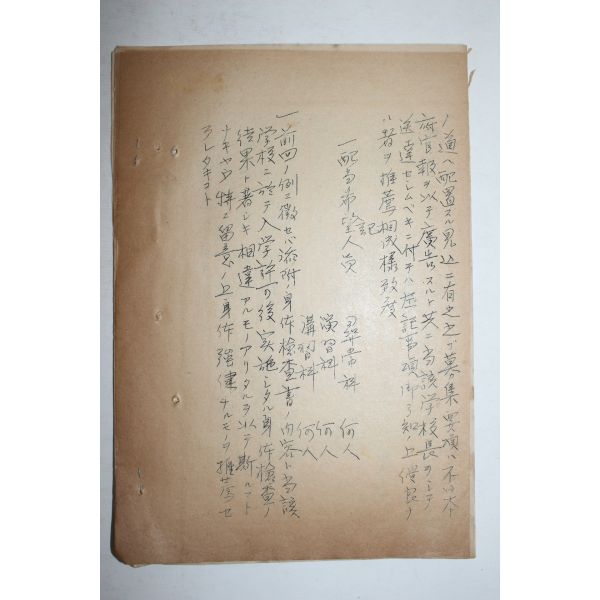 ノ道ヘ配置スル見込ニ有之之ガ募集要項ハ不日本
府官報ヲ以テ廣告スルト共ニ当該学校長ヲシテ
送達セシムベキニ付テハ左記事項御了知ノ上優良ナ
ル者ヲ推薦相成様致度
記
一配当希望人員
尋常科 何人
演習科 何人
講習科 何人
一前四ノ例ニ徴セバ添附ノ身体検査書ノ内容ト当該
学校ニ於テ入学許可後実施シタル身体検査ノ
結果ト著シキ相違アルモノアリタルヲ以テ斯ルコト
ナキヤウ特ニ留意ノ上身体強健ナルモノヲ推薦セ
ラレタキコト